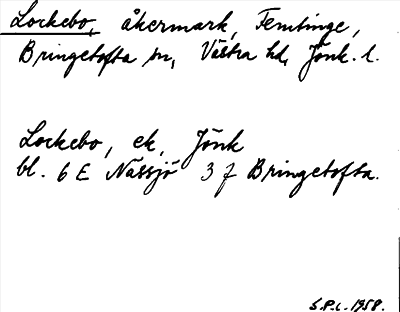 Lockebo, åkermark, Femtinge,
Bringetofta sn, Västra hd, Jönk. l.
Lockebo, ek, Jönk
bl. 6 E Nässjö 3 f Bringetofta.
S.P.L. 1958.